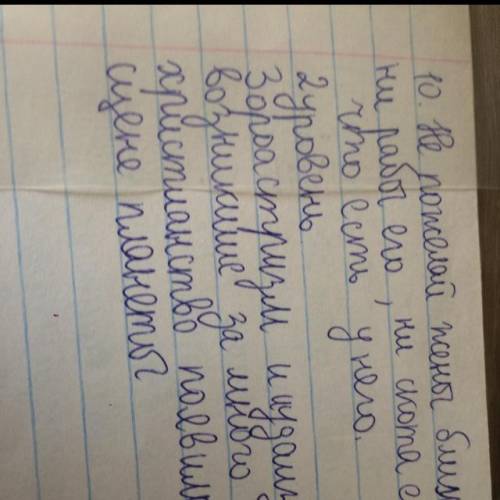 10. Не пожелай жены
ни рабы его, ни скота
что есть у него.
2 уровень
Зороастризм и
возникшие за много
христианство
сцене планеты